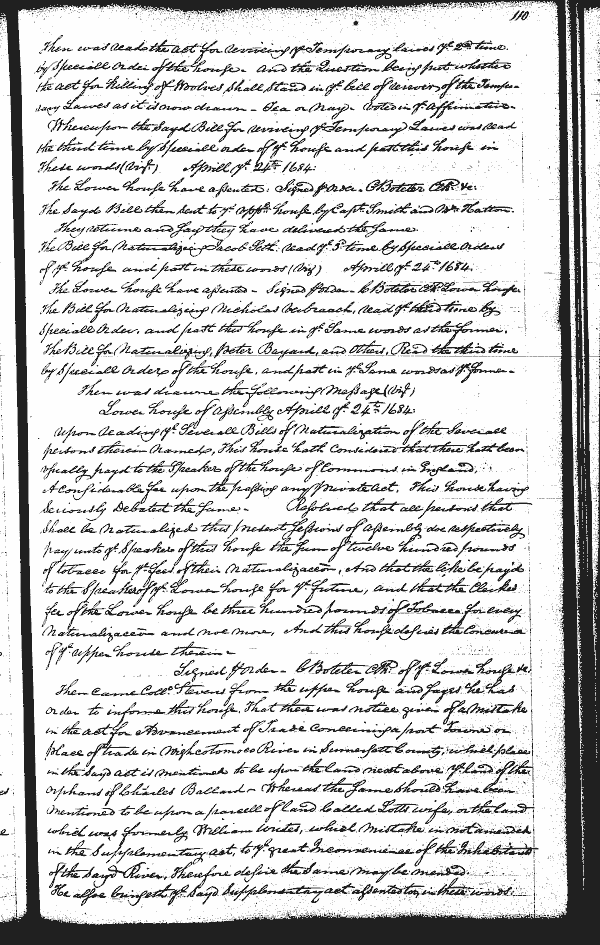 110
Then was read the act for reviveing ye Temporary lawes ye 2d time
by Speciall Order of the house. and the Question being put whether
the act for killing of Wolves shall stand in ye bill of reviver of the Tempo-
rary Lawes as it is now drawn - Yea or Nay - voted in ye Affirmative.
Whereupon the Sayd Bill for reviveing ye Temporary Lawes was read
the third time by Speciall order of ye house and past this house in
these words (vizt) Aprill ye 24th 1684.
The Lower house have assented. Signed p Order - C Boteler Clk &c.
The Sayd Bill then sent to ye uppr house by Capt. Smith and Mr Hatton.
They returne and Say they have delivered the Same
The Bill for Naturalizing Jacob Seth. read ye 3d time by Speciall Orders
of ye house and past in these words (viz) Aprill ye 24th 1684.
The Lower house have assented - Signed p Order - C Boteler Clk Lower house
The Bill for Naturalizing Nicholas Verbraack, read ye third time by
Speciall Order, and past this house in ye Same words as the former.
The Bill for Naturalizing, Peter Bayard, and Others, Read the third time
by Speciall Orders of the house, and past in ye Same words as ye former -
Then was drawne the following Message (vizt)
Lower house of Assembly Aprill ye 24th 1684.
Upon reading ye Severall Bills of Naturalization of the Severall
persons therein Named, This house hath Considered that there hath been
usually payd to the Speaker of the house of Commons in England,
A Considerable fee upon the passing any private Act. This house having
Seriously Debated the Same - Resolved that all persons that
Shall be Naturalized this present Sessions of Assembly doe respectively
pay unto ye Speaker of this house the Sum of twelve hundred pounds
of tobacco for ye Fees of their Naturalizacon, And that the like be payd
to the Speaker of ye Lower house for ye future, and that the Clerkes
fee of the Lower house be three hundred pounds of Tobacco for every
Naturalizacon and noe more, And this house desires the Concurrence
of ye upper house therein -
Signed p Order - C Boteler Clk. of ye Lower house &c.
Then Came Coll. Stevens from the upper house and Sayes he has
order to informe this house, That there was notice given of a Mistake
in the act for Advancement of Trade Concerning a port Towne or
place of trade in Wighcotomoco River in Summersett County, which place
in the Sayd act is mentioned to be upon the land next above ye land of the
orphans of Charles Ballard - Whereas the Same Should have been
mentioned to be upon a parcell of land Called Lotts wife, or the land
which was formerly William Writes, which Mistake is not amended
in the Supplementary act, to ye great Inconvenience of the Inhabitants
of the Sayd River. Therefore desire the Same may be mended.
He alsoe bringeth ye Sayd Supplementary act assented to, in these words.